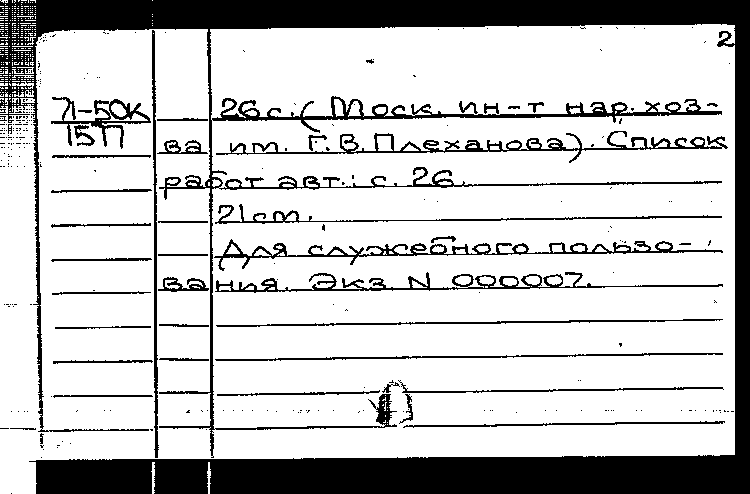 2
71-50к 26 с. (Моск. ин-т нар. хоз-
1577
ва им. Г.В. Плеханова). Список
работ авт.: с. 26.
21 см.
Для служебного пользо-
вания. Экз. N 000007.